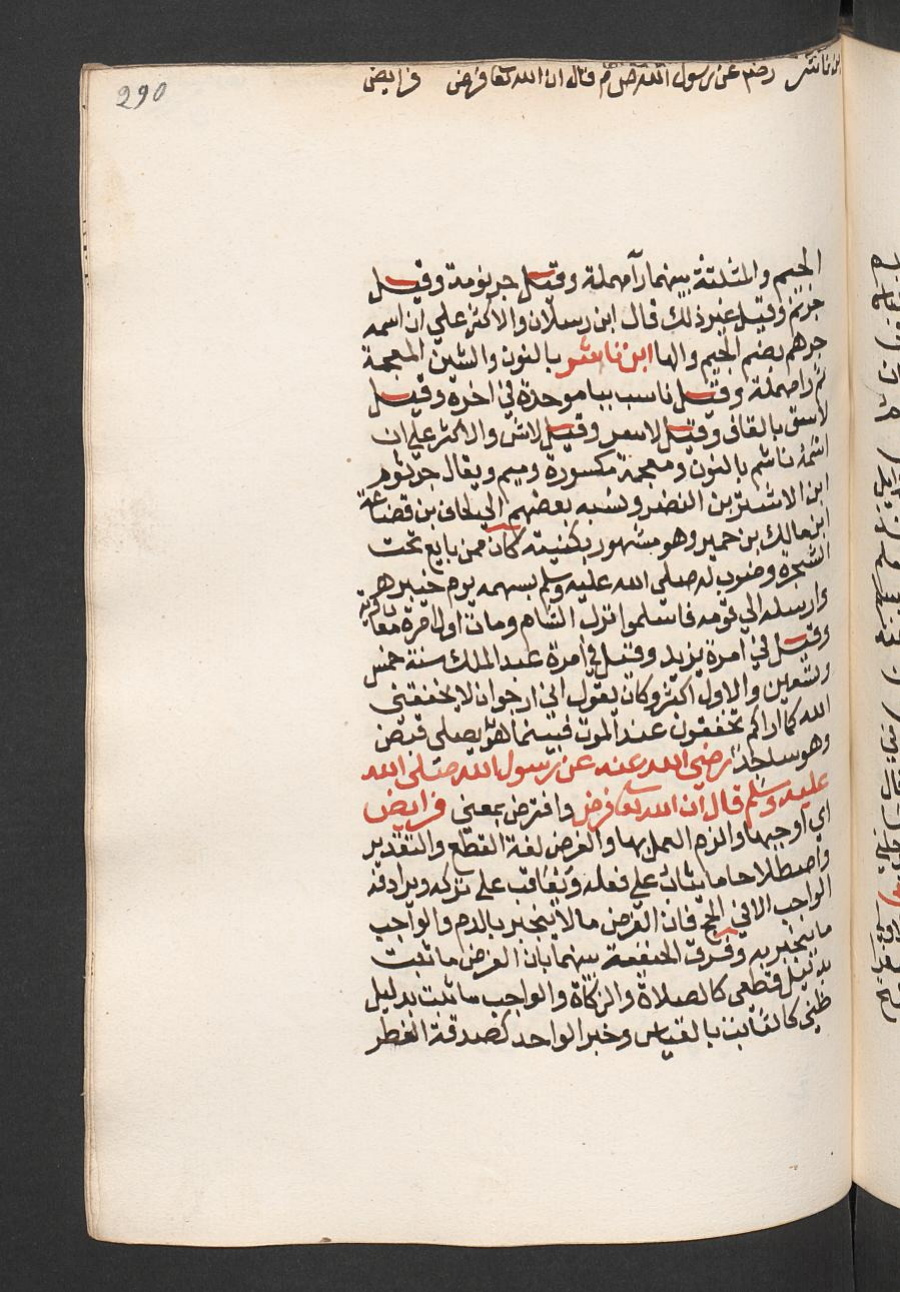 290
ابن ناشر رضه عن رسول الله ص م قال ان الله تعا فرض فرايض
الجيم والمثلثة بينهما رآ مهملة وقيل جرثومة وقيل
جرثم وقيل غير ذلك قال ابن رسلان والاكثر علي ان اسمه
جرهم بضم الجيم والها ابن ناشر بالنون والشين المعجمة
ثم را مهملة وقيل ناسب بيا موحدة في اخره وقيل
لاسق بالقاف وقيل لاسر وقيل لاش والاكثر علي ان
اسمه ناشم بالنون ومعجمة مكسورة وميم ويقال جرثوم
ابن الاشتر بن النضر ونسبه بعضهم الي الحاف بن قضاعة
ابن مالك بن حمير وهو مشهور بكنيته كان ممن بايع تحت
الشجرة وضرب له صلي الله عليه وسلم بسهمه يوم خيبر
وارسله الي قومه فاسلموا نزل الشام ومات اول امرة معاوية
وقيل في امرة يزيد وقيل في امرة عبد الملك سنة خمس
وسبعين والاول اكثر وكان يقول اني ارجوا ان لا يخنقني
الله كما اراكم تخنقون عند الموت فبينما هو يصلي قبض
وهو ساجد رضي الله عنه عن رسول الله صلي الله
عليه وسلم قال ان الله تعا فرض وافترض بمعني فرايض
اي اوجبها والزم العمل بها والفرض لغة القطع والتقدير
واصطلاحا ما يثاب علي فعله ويعاقب علي تركه ويرادفه
الواجب الا في الحج فان الفرض ما لا ينجبر بالدم والواجب
ما ينجبر به وفرق الحنفية بينهما بان الفرض ما ثبت
بدليل قطعي كالصلاة والزكاة والواجب ما ثبت بدليل
ظني كالثابت بالقياس وخبر الواحد كصدقة الفطر